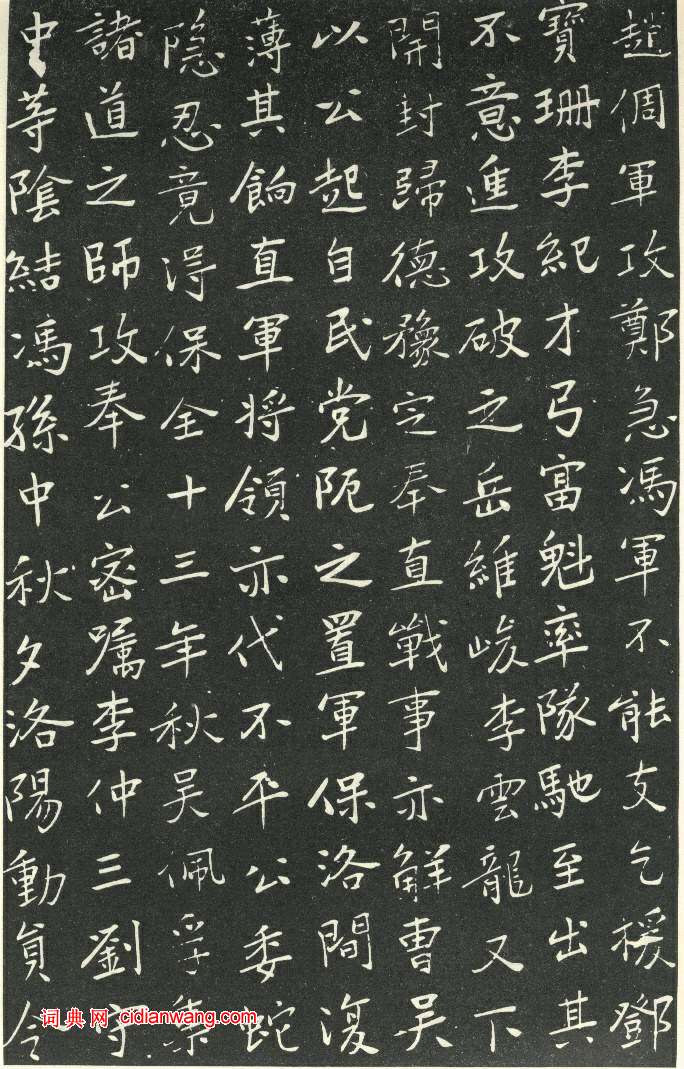 趙倜軍攻鄭急馮軍不能支乞援鄧
寶珊李紀才弓富魁率隊馳至出其
不意進攻破之岳維峻李雲龍又下
開封歸德豫定奉直戰事亦解曹吳
以公起自民党阨之置軍保洛間復
薄其餉直軍將領亦代不平公委蛇
隱忍竟得保全十三年秋吳佩孚集
諸道之師攻奉公密嘱李仲三劉守
中等陰結馮孫中秋夕洛陽動員令
词典网 cidianwang.com